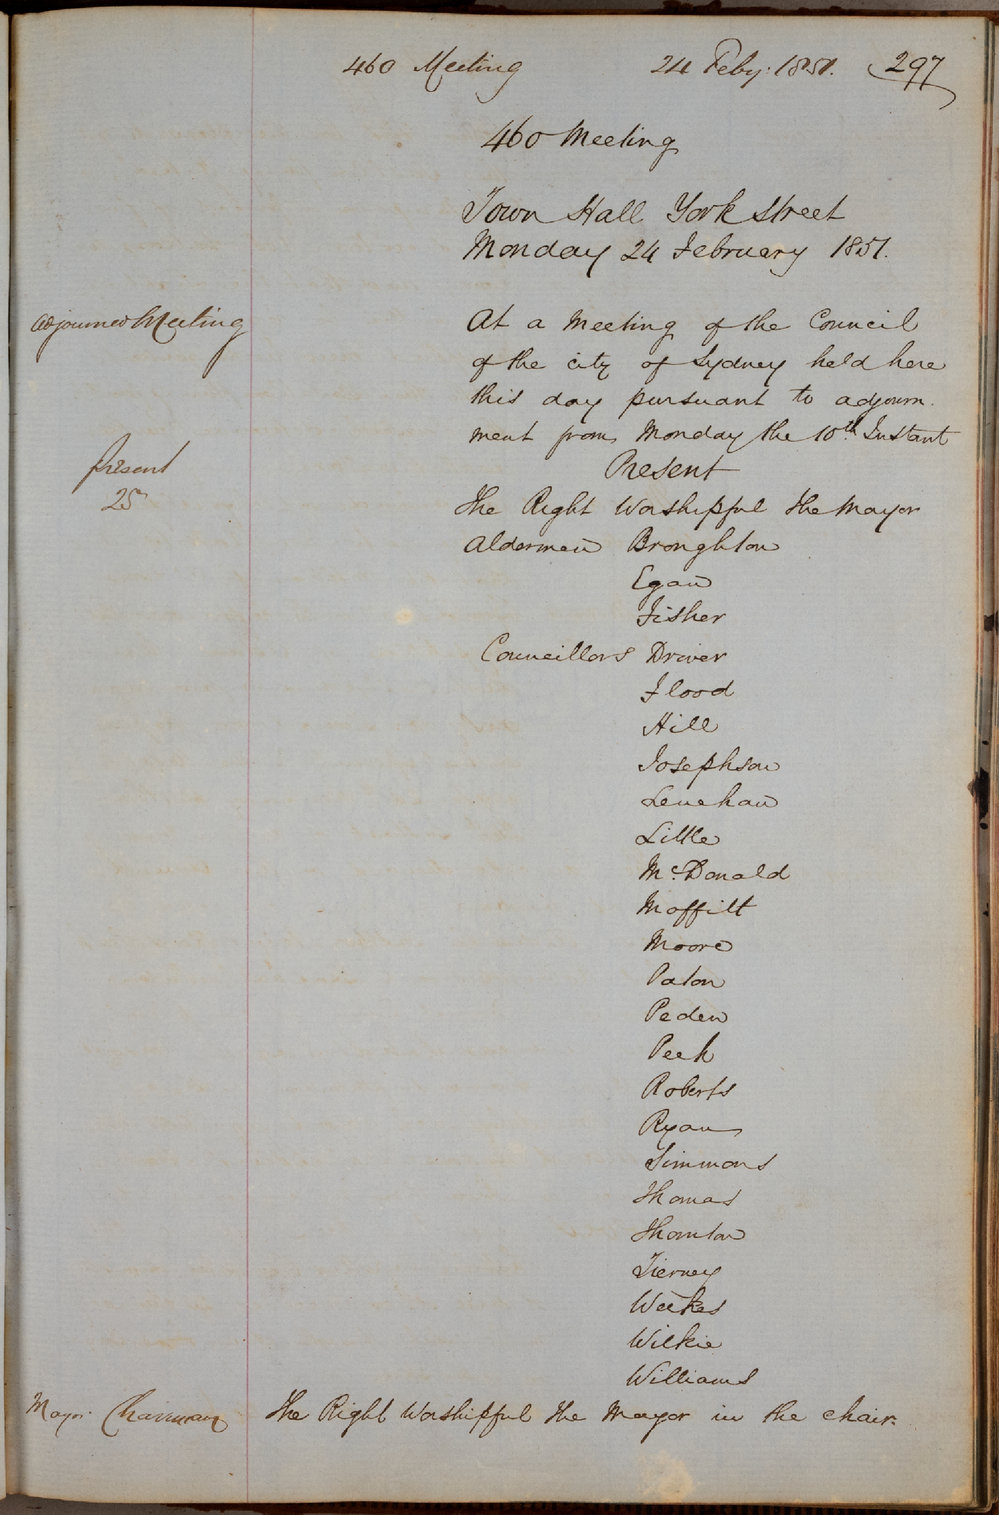 460 Meeting 24 Feby. 1851. 297
460 Meeting
Town Hall York Street
Monday 24 February 1851.
Adjourned Meeting
At a Meeting of the Council
of the city of Sydney held here
this day pursuant to adjourn
ment from Monday the 10th Instant
Present
25
Present
The Right Worshipful the Mayor
Aldermen Broughton
Egan
Fisher
Councillors Driver
Flood
Hill
Josephson
Lenehan
Little
McDonald
Moffitt
Moore
Paton
Peden
Peek
Roberts
Ryan
Simmons
Thomas
Thornton
Tierney
Weekes
Wilkie
Williams
Mayor Chairman The Right Worshipful the Mayor in the chair.